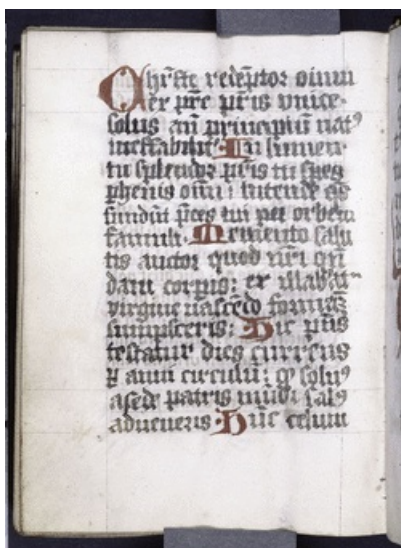 Chr̄ste redēptor oīniu
ex pr̄e pr̄is vnice·
solus an̄ principiū natꝰ
ineffabilitˀ· Tu lumen
tu splendor pr̄is tu spes
phenis oīm: intende qˢ
fundūt p̄ces tui per orbem
famuli· Memento salu
tis auctor quod nr̄i qn̄
dam corpis: ex illabata
virgine nascēdo formaꝫ
sumpseris: Hic pn̄s
testatur dies currens
p anni circulū: qͥ solꝰ
a sede patris mūdi salꝰ
adveneris· Hūc celum